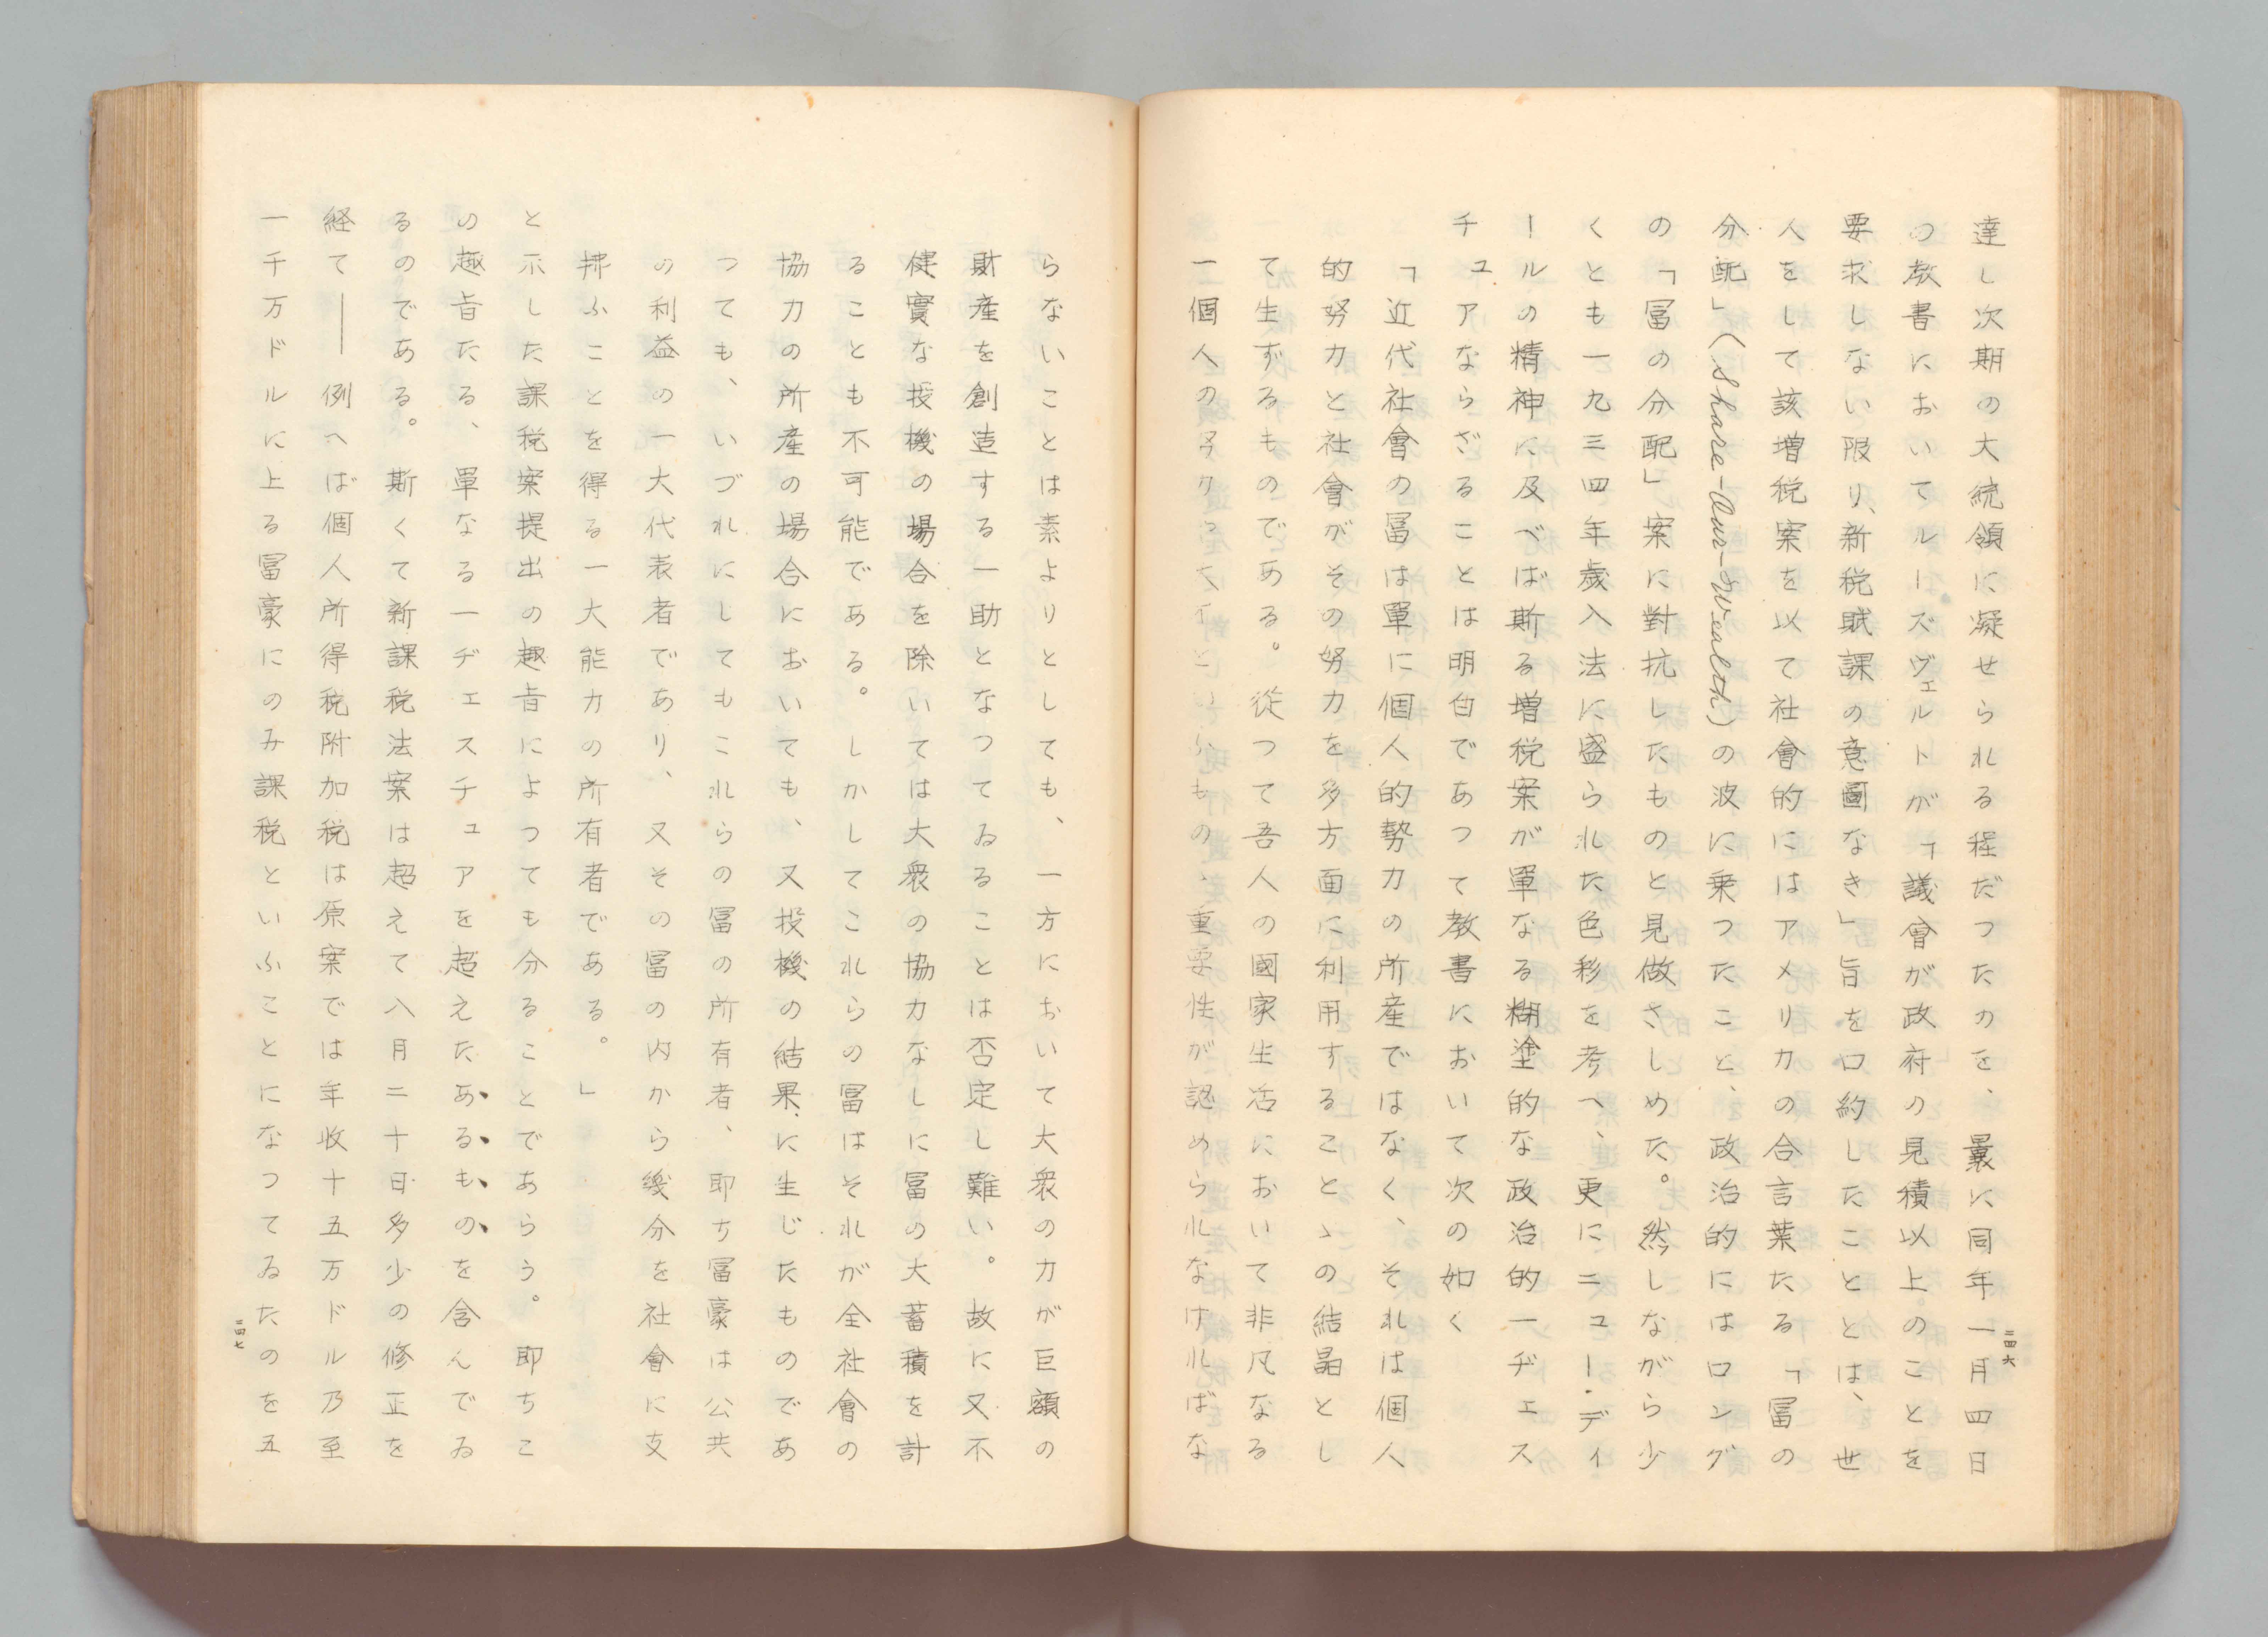 達し次期の大統領に凝せられる程だつたのを、曩に同年一月四日
の教書においてルーズヴェルトが「議會が政府の見積以上のことを
要求しない限り、新税賦課の意圖なき」旨を口約したこととは、世
人をして該増税案を以て社會的にはアメリカの合言葉たる「冨の
分配」(Share-Our-Wealth)の波に乗つたこと、政治的にはロング
の「冨の分配」案に對抗したものと見做さしめた。然しながら少
くとも一九三四年歳入法に盛られた色彩を考へ、更にニュー・ディ
ールの精神に及べば斯る増税案が單なる糊塗的な政治的一ヂェス
チュアならざることは明白であつて教書において次の如く
「近代社會の冨は單に個人的勢力の所産ではなく、それは個人
的努力と社會がその努力を多方面に利用することゝの結晶とし
て生ずるものである。從つて吾人の國家生活において非凡なる
一個人の努力の大イといふもの、重要性が認められなければな
二四六
らないことは素よりとしても、一方において大衆の力が巨額の
財産を創造する一助となつてゐることは否定し難い。故に又不
健實な投機の場合を除いては大衆の協力なしに冨の大蓄積を計
ることも不可能である。しかしてこれらの冨はそれが全社會の
協力の所産の場合においても、又投機の結果に生じたものであ
つても、いづれにしてもこれらの冨の所有者、即ち冨豪は公共
の利益の一大代表者であり、又その冨の内から幾分を社會に支
拂ふことを得る一大能力の所有者である。」
と示した課税案提出の趣旨によつても分ることであらう。即ちこ
の趣旨たる、單なる一ヂェスチュアを超えたあるものを含んでゐ
るのである。斯くて新課税法案は超えて八月二十日多少の修正を
経て――例へば個人所得税附加税は原案では年收十五万ドル乃至
一千万ドルに上る冨豪にのみ課税といふことになつてゐたのを五
二四七